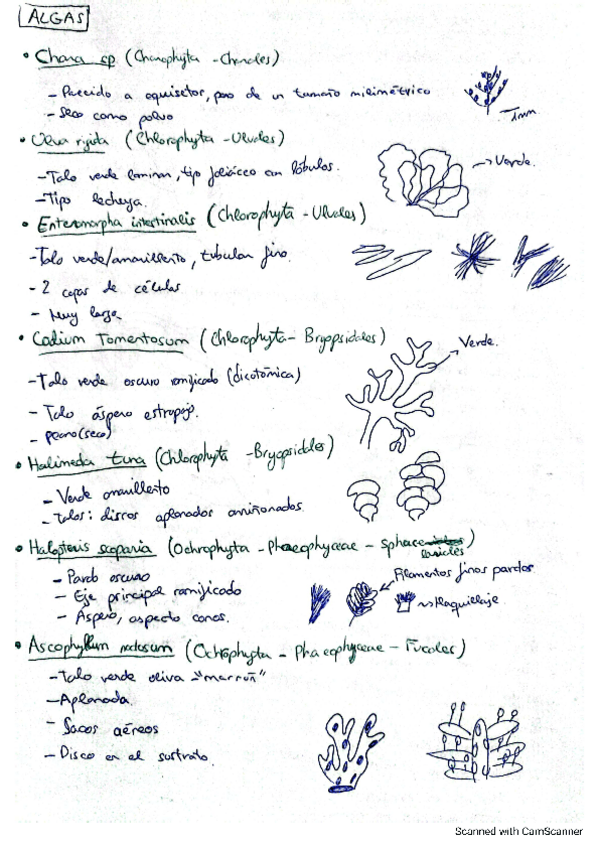 ALGAS
• Chara sp (Charophyta - Charales)
- Parecido a equisetos, pero de un tamaño milimétrico
- Seco como polvo
1mm
• Ulva rigida (Chlorophyta - Ulvales)
- Talo verde laminar, tipo foliáceo con lóbulos.
→ Verde.
- Tipo lechuga.
• Enteromorpha intestinalis (Chlorophyta - Ulvales)
- Talo verde/amarillento, tubular fino.
- 2 capas de células
- Muy larga
• Codium Tomentosum (Chlorophyta - Bryopsidales)
Verde.
- Talo verde oscuro ramificado (dicotómica)
- Talo áspero estropajo.
- (seco)
• Halimeda tuna (Chlorophyta - Bryopsidales)
- Verde amarillento
- Talos: discos aplanados arriñonados
• Halopteris scoparia (Ochrophyta - Phaeophyceae - Sphacelariales)
- Pardo oscuro
Filamentos finos pardos
- Eje principal ramificado
→ Maquillaje
- Áspero, aspecto conos.
• Ascophyllum nodosum (Ochrophyta - Phaeophyceae - Fucales)
- Talo verde oliva "marrón"
- Aplanada
- Sacos aéreos
- Disco en el sustrato.
Scanned with CamScanner